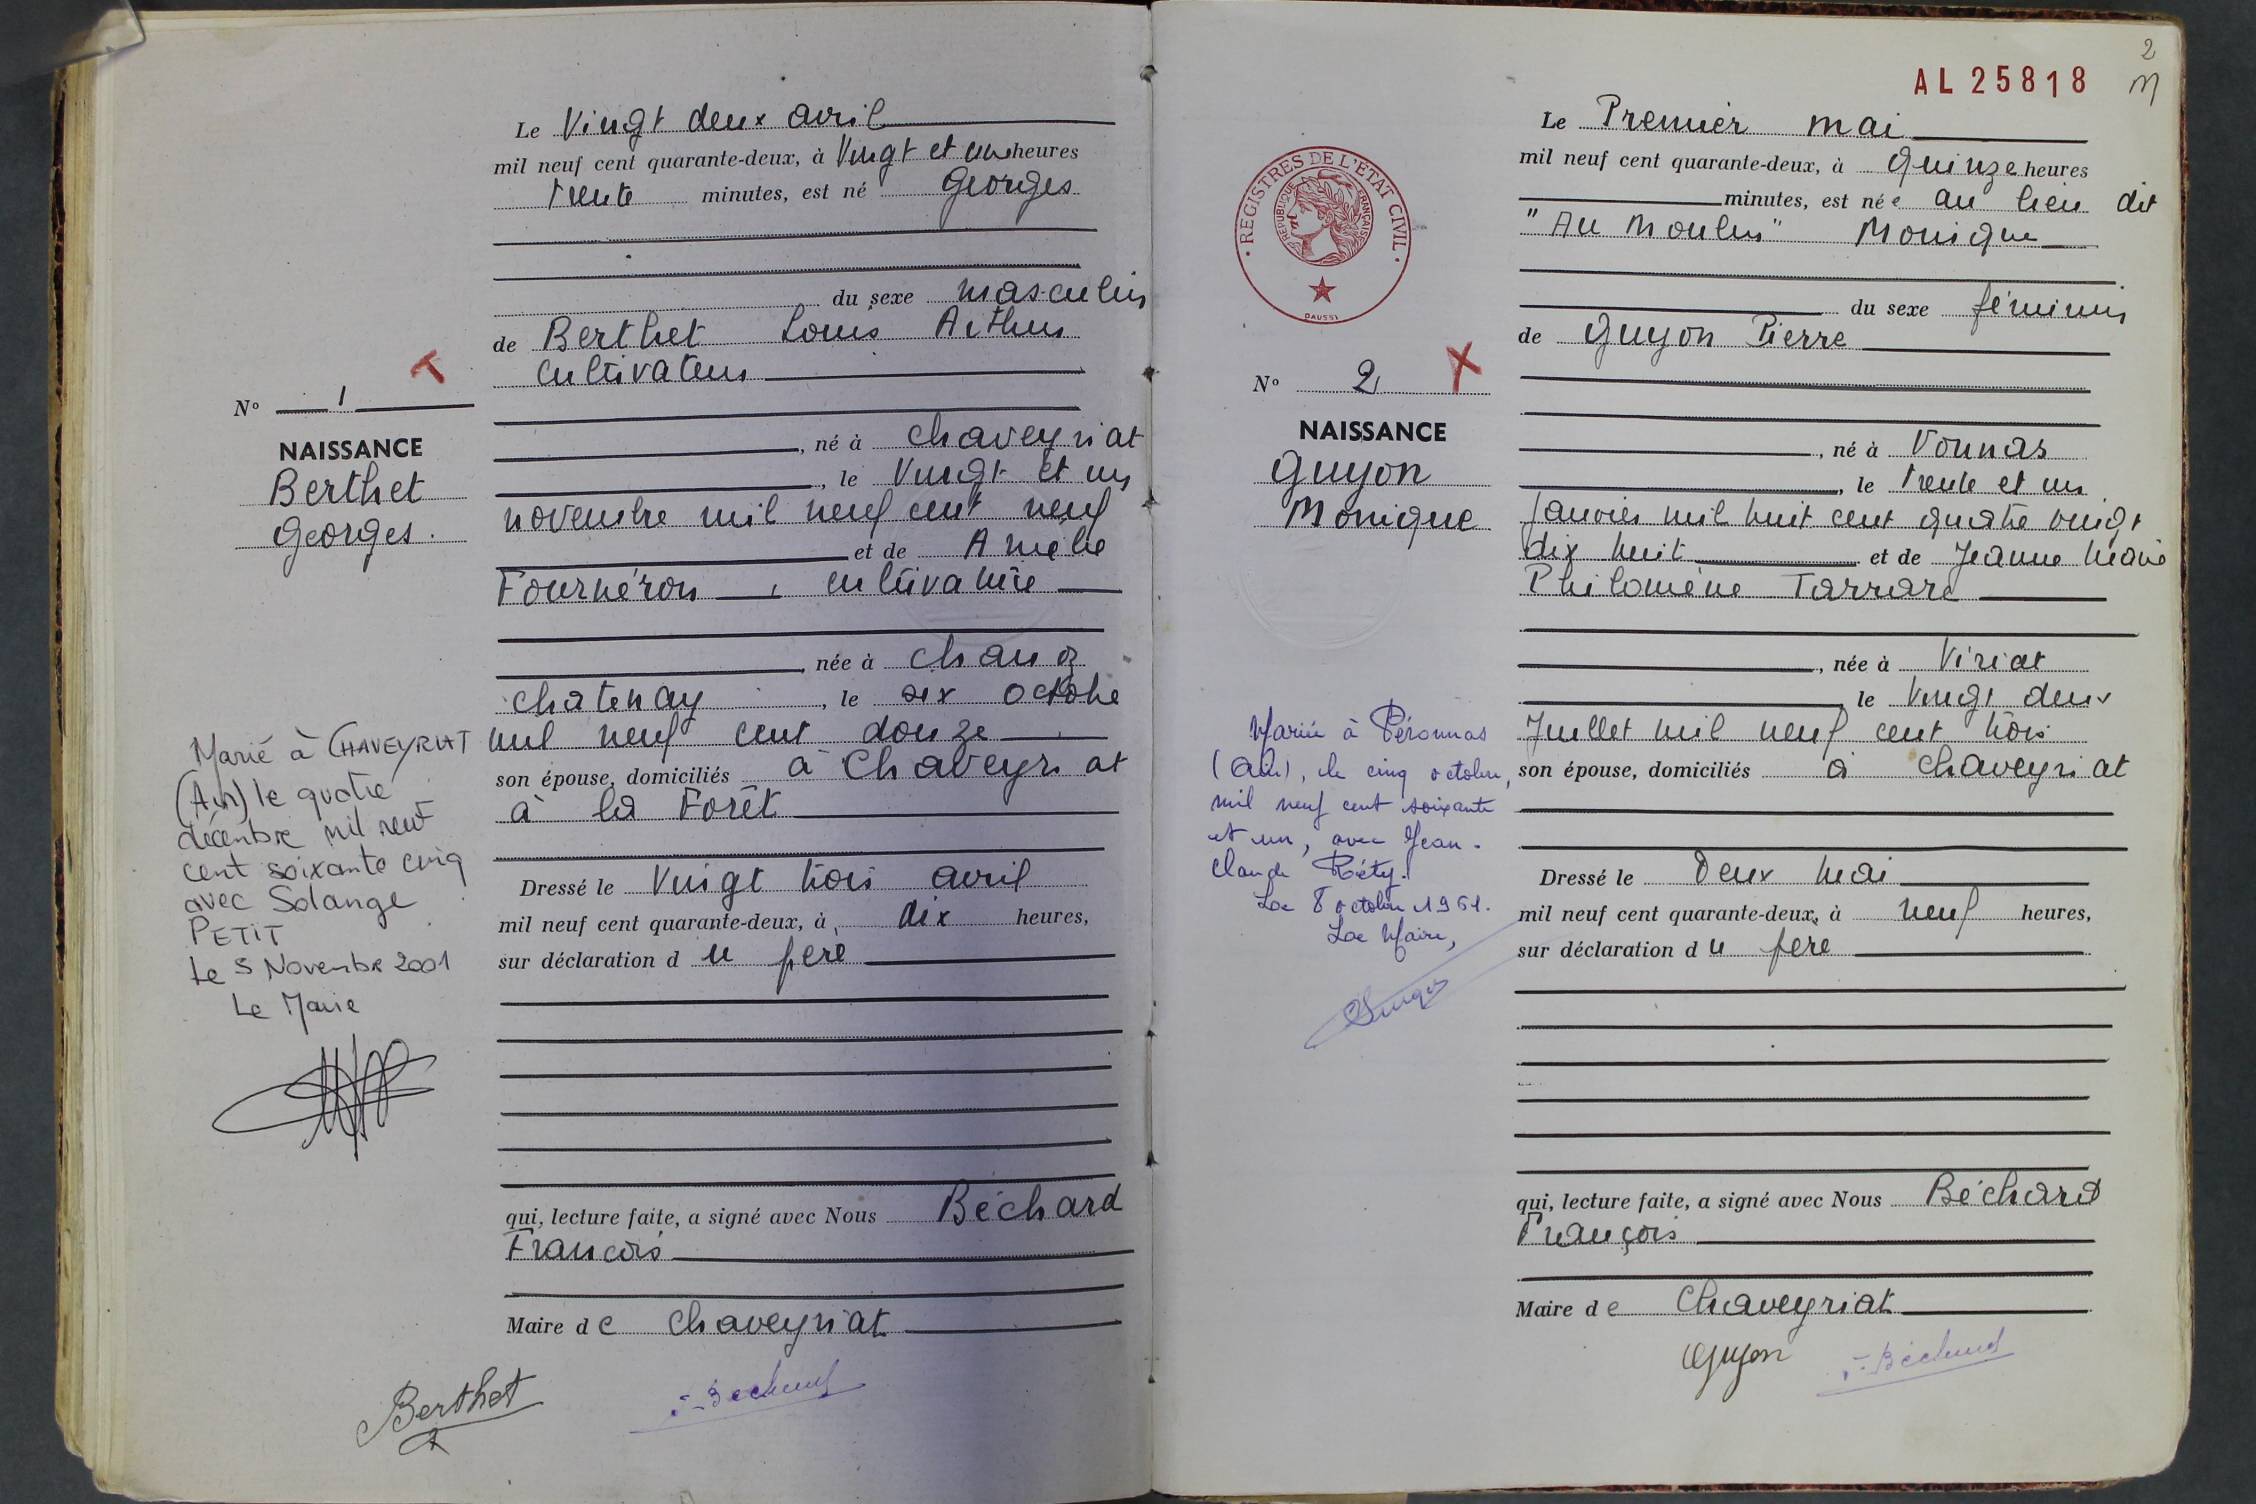 Le Vingt deux avril
mil neuf cent quarante-deux, à Vingt et un heures
trente minutes, est né Georges
du sexe masculin
de Berthet Louis Arthur
cultivateur
N° 1
NAISSANCE
Berthet
Georges.
, né à Chaveyriat
, le Vingt et un
novembre mil neuf cent neuf
et de Amélie
Fournéron, cultivatrice
née à Chanoz
Chatenay, le six octobre
mil neuf cent douze
son épouse, domiciliés à Chaveyriat
à la Forêt
Marié à CHAVEYRIAT
(Ain) le quatre
décembre mil neuf
cent soixante cinq
avec Solange
PETIT
Le 5 Novembre 2001
Le Maire
Dressé le Vingt trois avril
mil neuf cent quarante-deux, à dix heures,
sur déclaration du père
qui, lecture faite, a signé avec Nous Béchard
François
Maire de Chaveyriat
Berthet
F. Béchard
2
M
AL 25818
Le Premier mai
mil neuf cent quarante-deux, à quinze heures
minutes, est née au lieu dit
"Au Moulin" Monique
du sexe féminin
de Guyon Pierre
REGISTRES DE L'ETAT CIVIL
REPUBLIQUE FRANÇAISE
DAUSSI
N° 2 X
NAISSANCE
Guyon
Monique
, né à Vonnas
, le trente et un
Janvier mil huit cent quatre vingt
dix huit et de Jeanne Marie
Philomène Tarrare
, née à Viriat
le Vingt deux
Juillet mil neuf cent trois
son épouse, domiciliés à Chaveyriat
Mariée à Péronnas
(Ain), le cinq octobre,
mil neuf cent soixante
et un, avec Jean-
Claude Réty.
Le 8 octobre 1961.
Le Maire,
Dressé le Deux Mai
mil neuf cent quarante-deux, à neuf heures,
sur déclaration du père
qui, lecture faite, a signé avec Nous Béchard
François
Maire de Chaveyriat
Guyon
F. Béchard